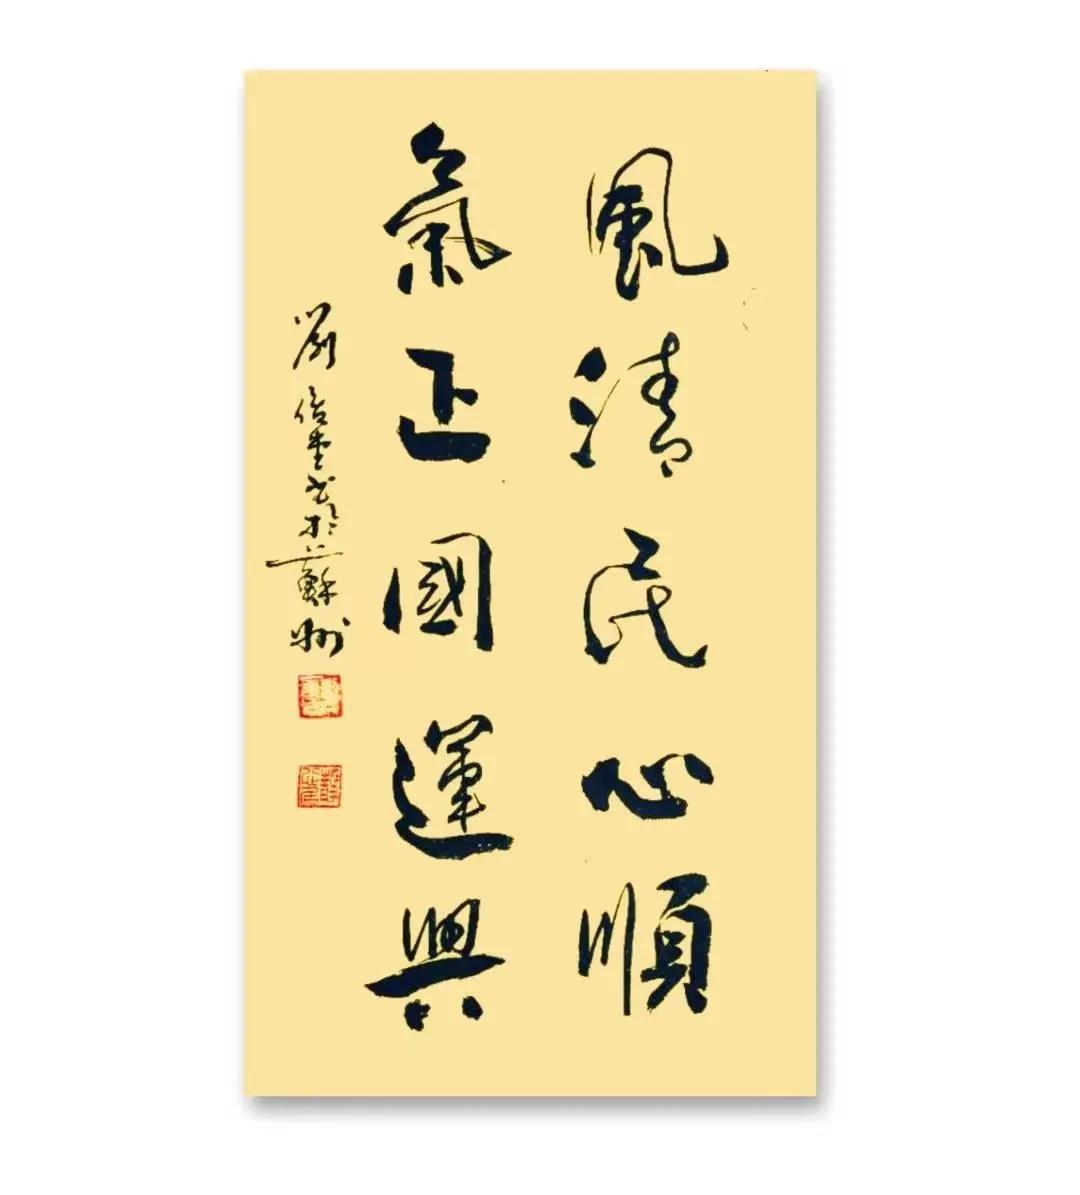 風清民心順
氣正國運興
劉 書於蘇州